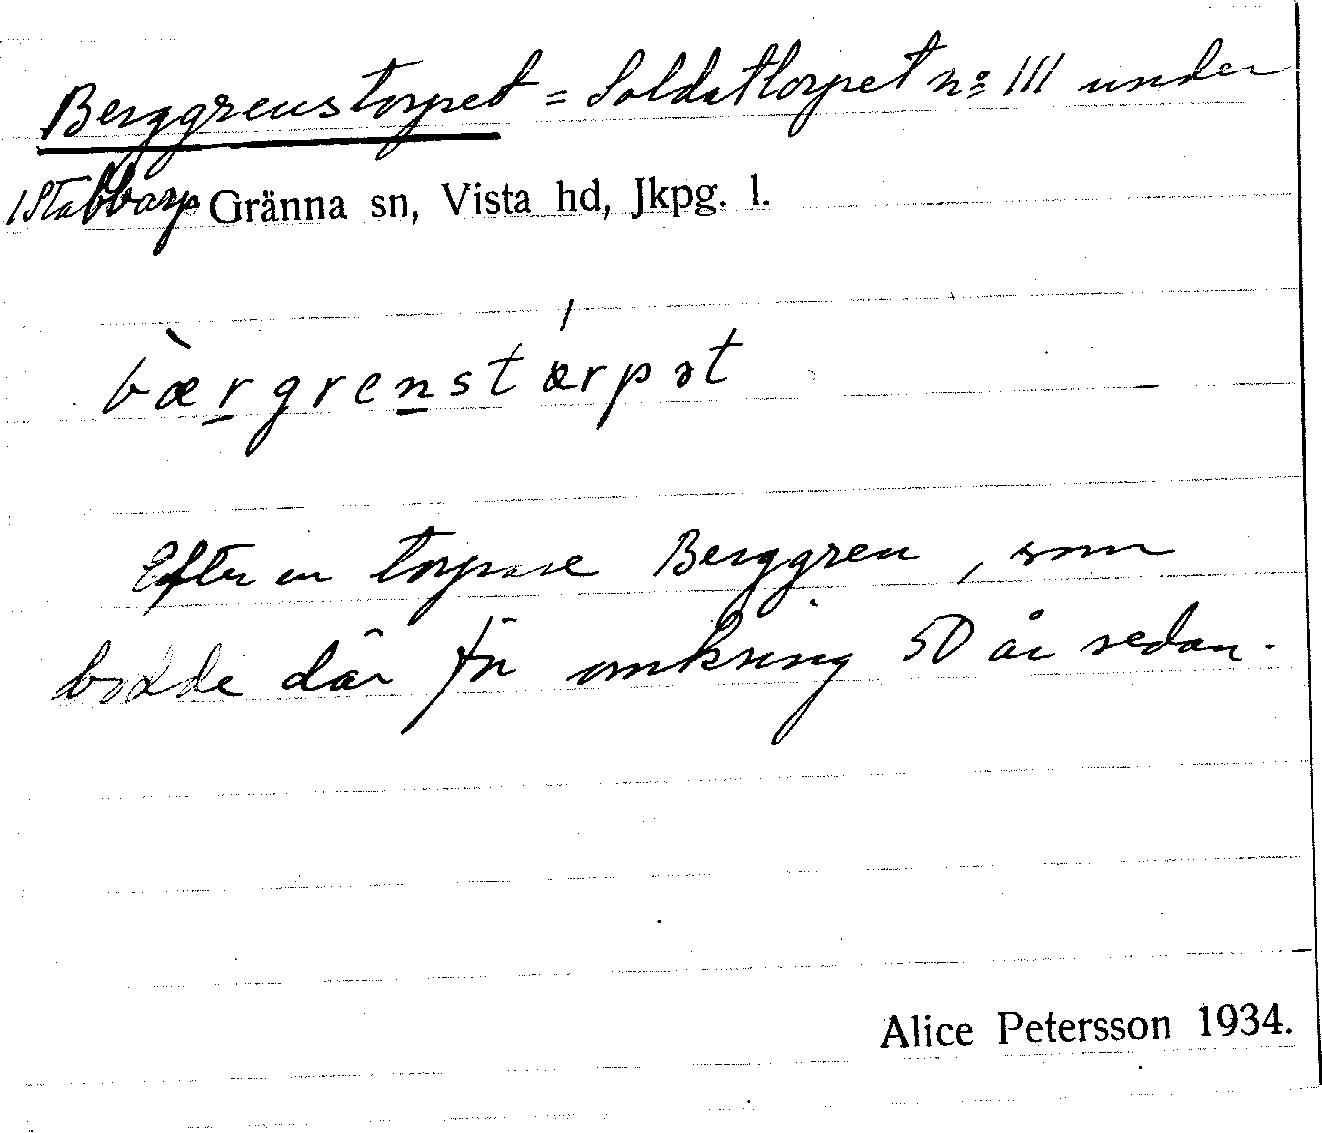 Berggrenstorpet = Soldattorpet nº 111 under
1 Stabbarp Gränna sn, Vista hd, Jkpg. l.
bæ̀rgrenstǽrpət
Efter en torpare Berggren, som
bodde där för omkring 50 år sedan.
Alice Petersson 1934.